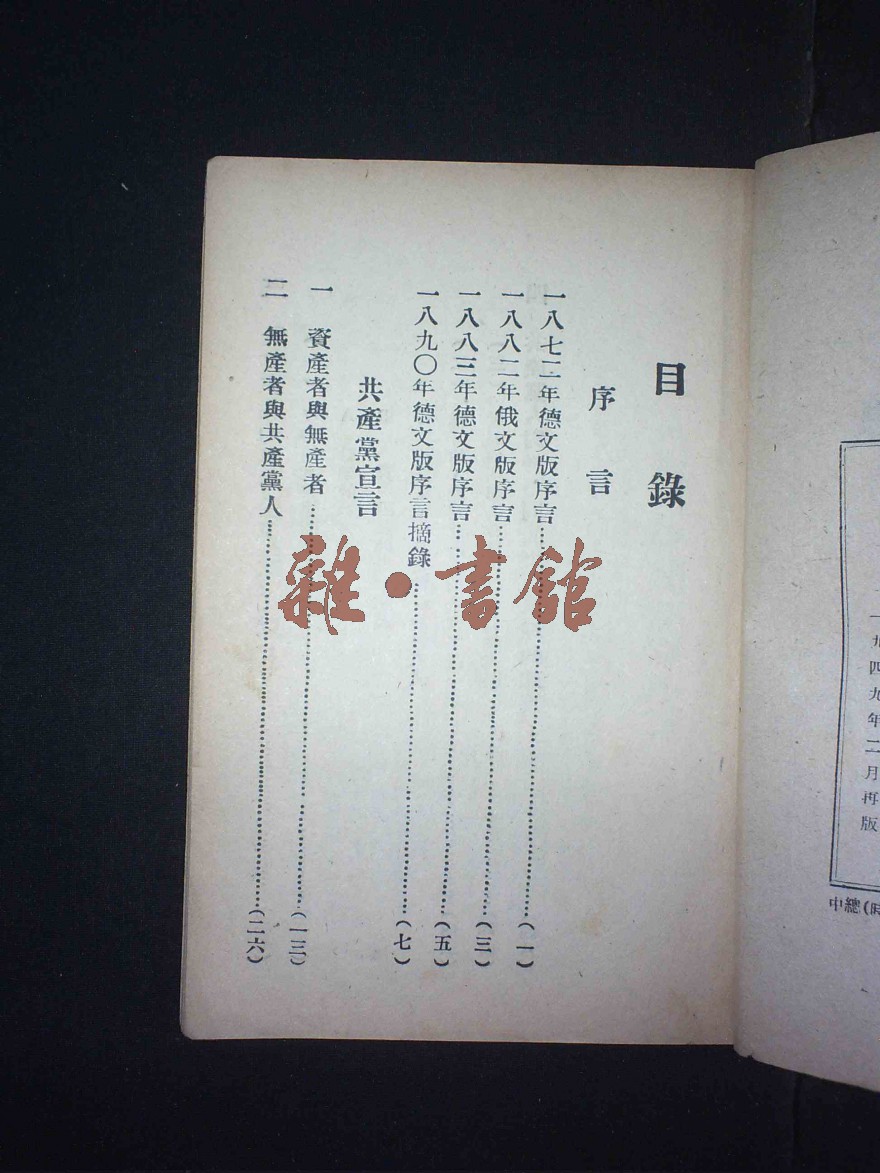 目錄
序言
一八七二年德文版序言……(一)
一八八二年俄文版序言……(三)
一八八三年德文版序言……(五)
一八九〇年德文版序言摘錄……(七)
共產黨宣言
一 資產者與無產者……(一三)
二 無產者與共產黨人……(二六)
雜·書館
一九四九年二月再版
中總(時